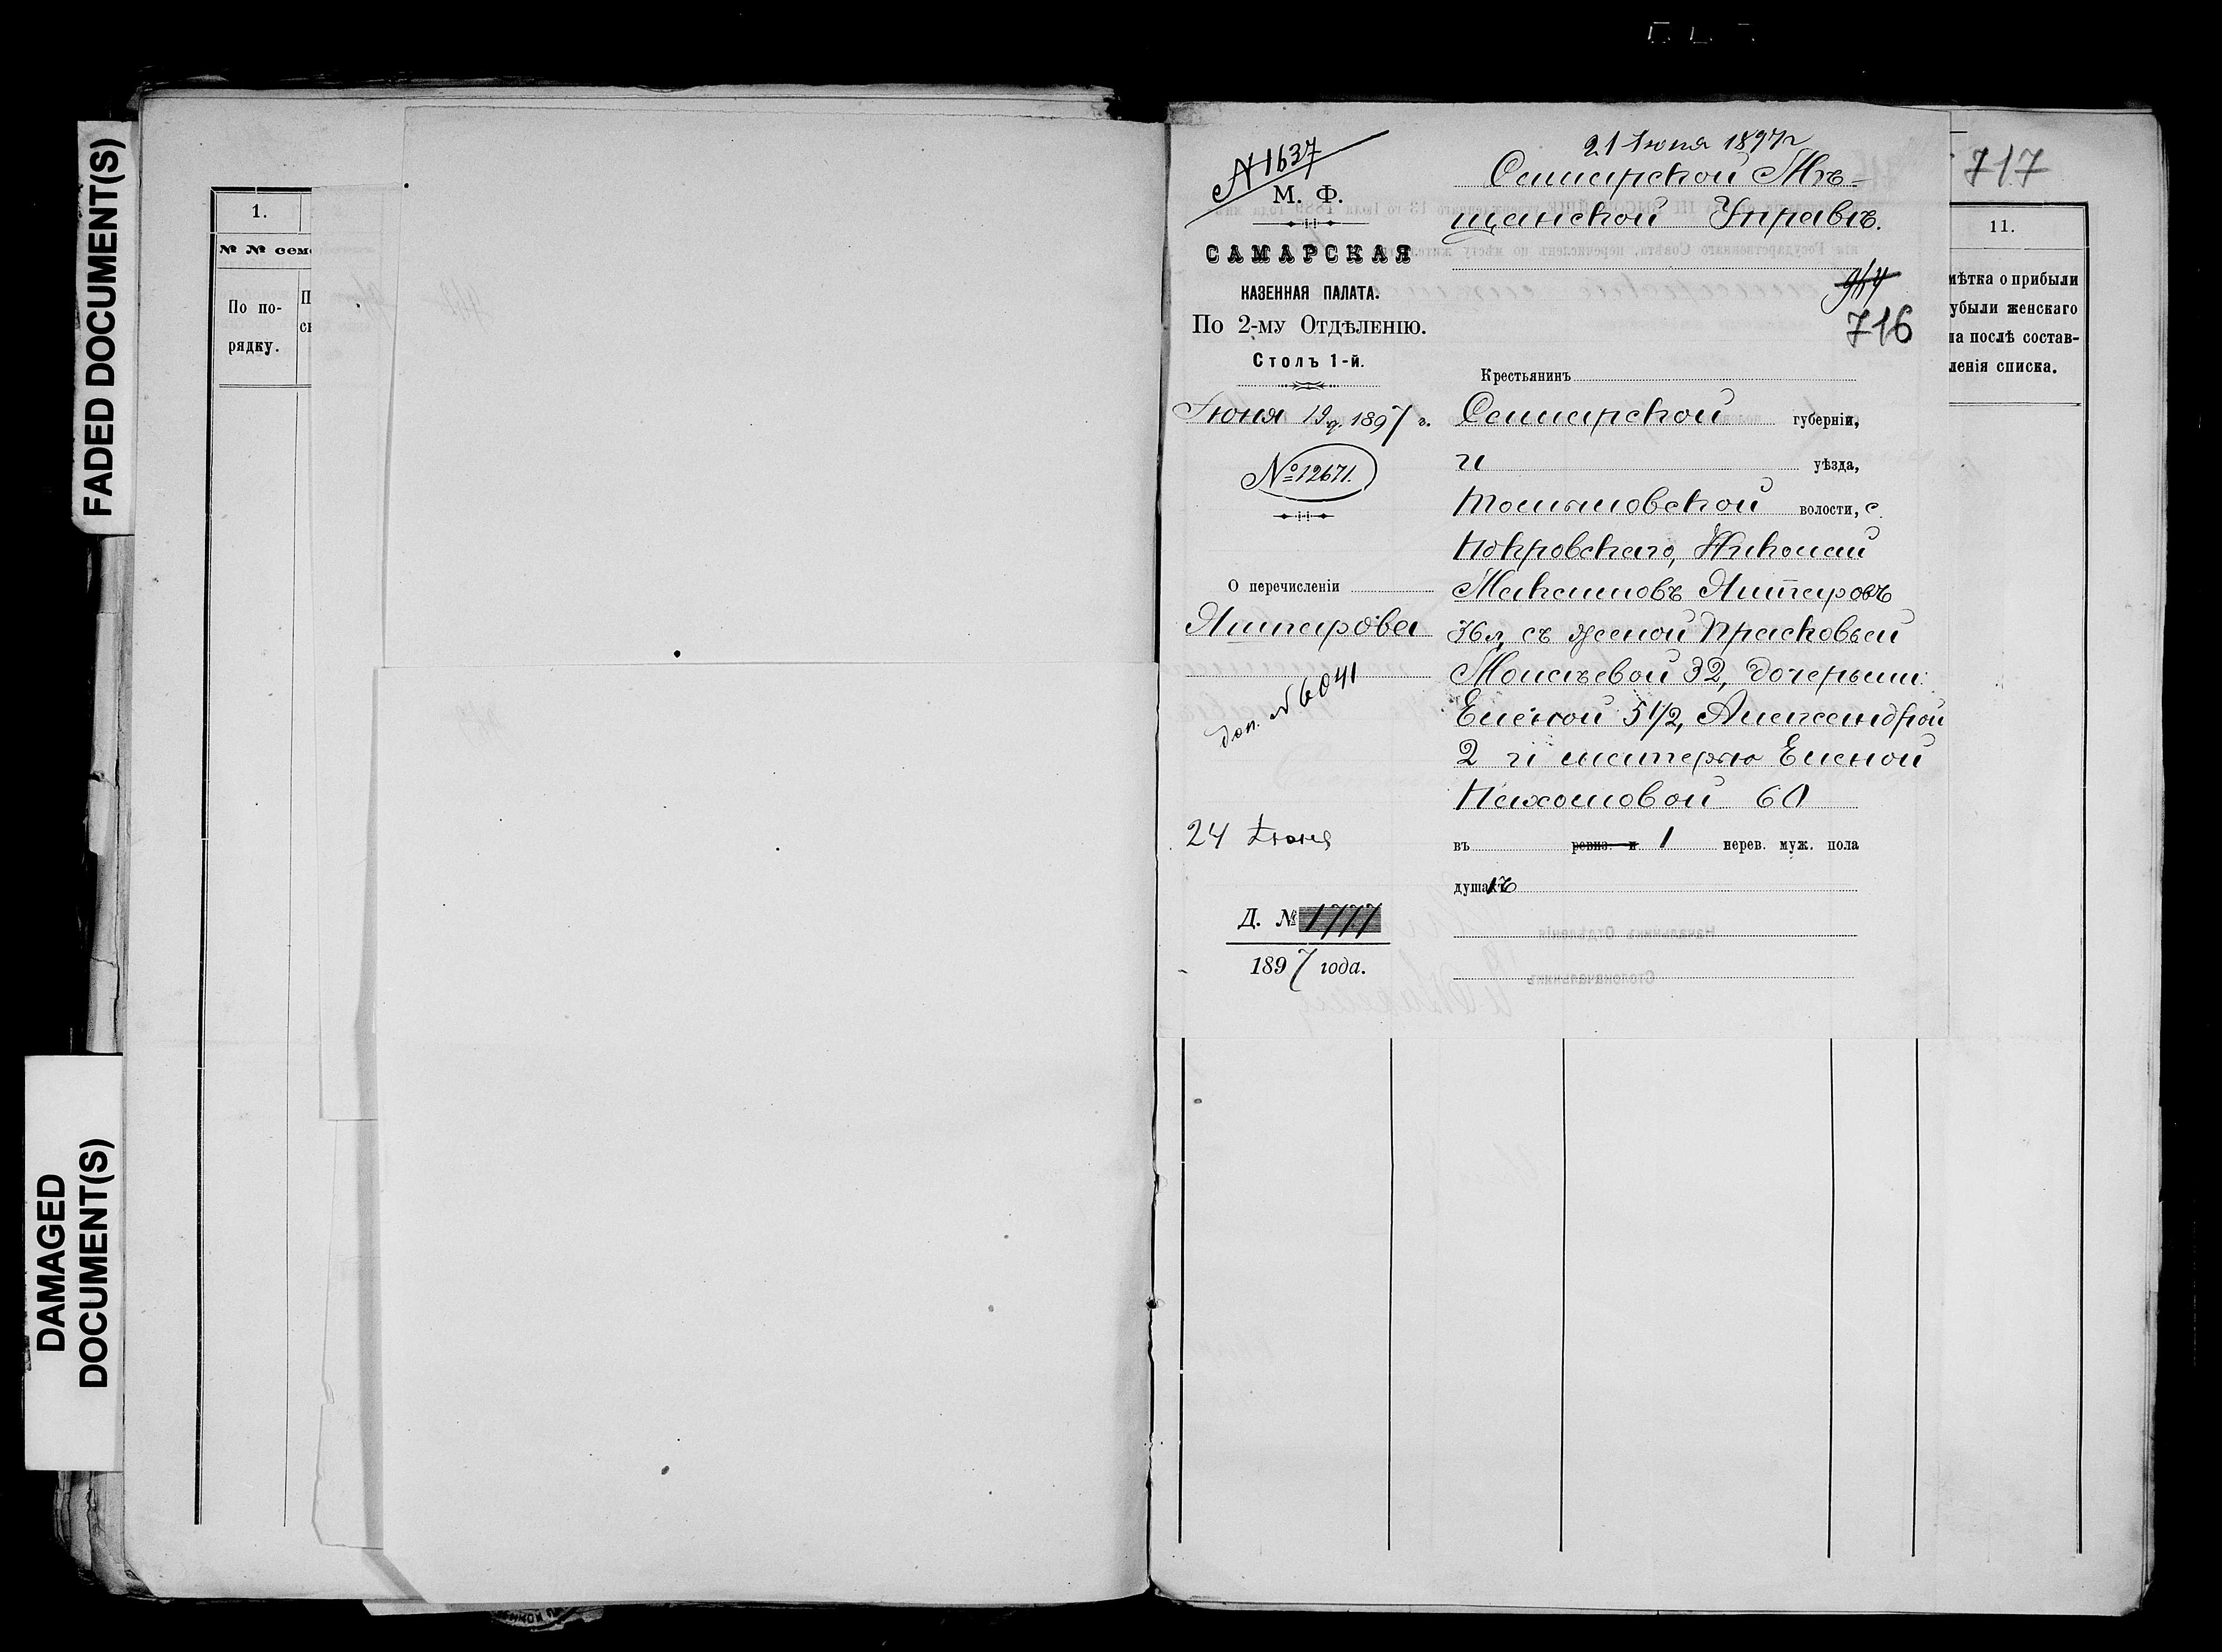 FADED DOCUMENT(S)
DAMAGED
DOCUMENT(S)
1.
№ № сем
По по-
рядку.
№ 1637
М. Ф.
САМАРСКАЯ
КАЗЕННАЯ ПАЛАТА.
По 2-му Отдѣленію.
Столъ 1-й.
Іюня 19 д. 1897 г.
№ 12671.
О перечисленіи
доп. № 6041
24 Іюня
Д. № 1777
1897 года.
21 Іюня 1897 г
Самарской Мѣ-
щанской Управѣ.
716
Крестьянинъ
Самарской губерніи,
и уѣзда,
волости, с.
Покровскаго, Николай
Максимовъ
36 л, съ женой Прасковьей
Моисѣевой 32, дочерьми:
Еленой 5 1/2, Александрой
2 и матерью Еленой
Пахомовой 60
въ ревиз. и 1 нерев. муж. пола
душахъ
717
11.
мѣтка о прибыли
убыли женскаго
ла послѣ состав-
ленія списка.
Начальникъ Отдѣленія
Столоначальникъ